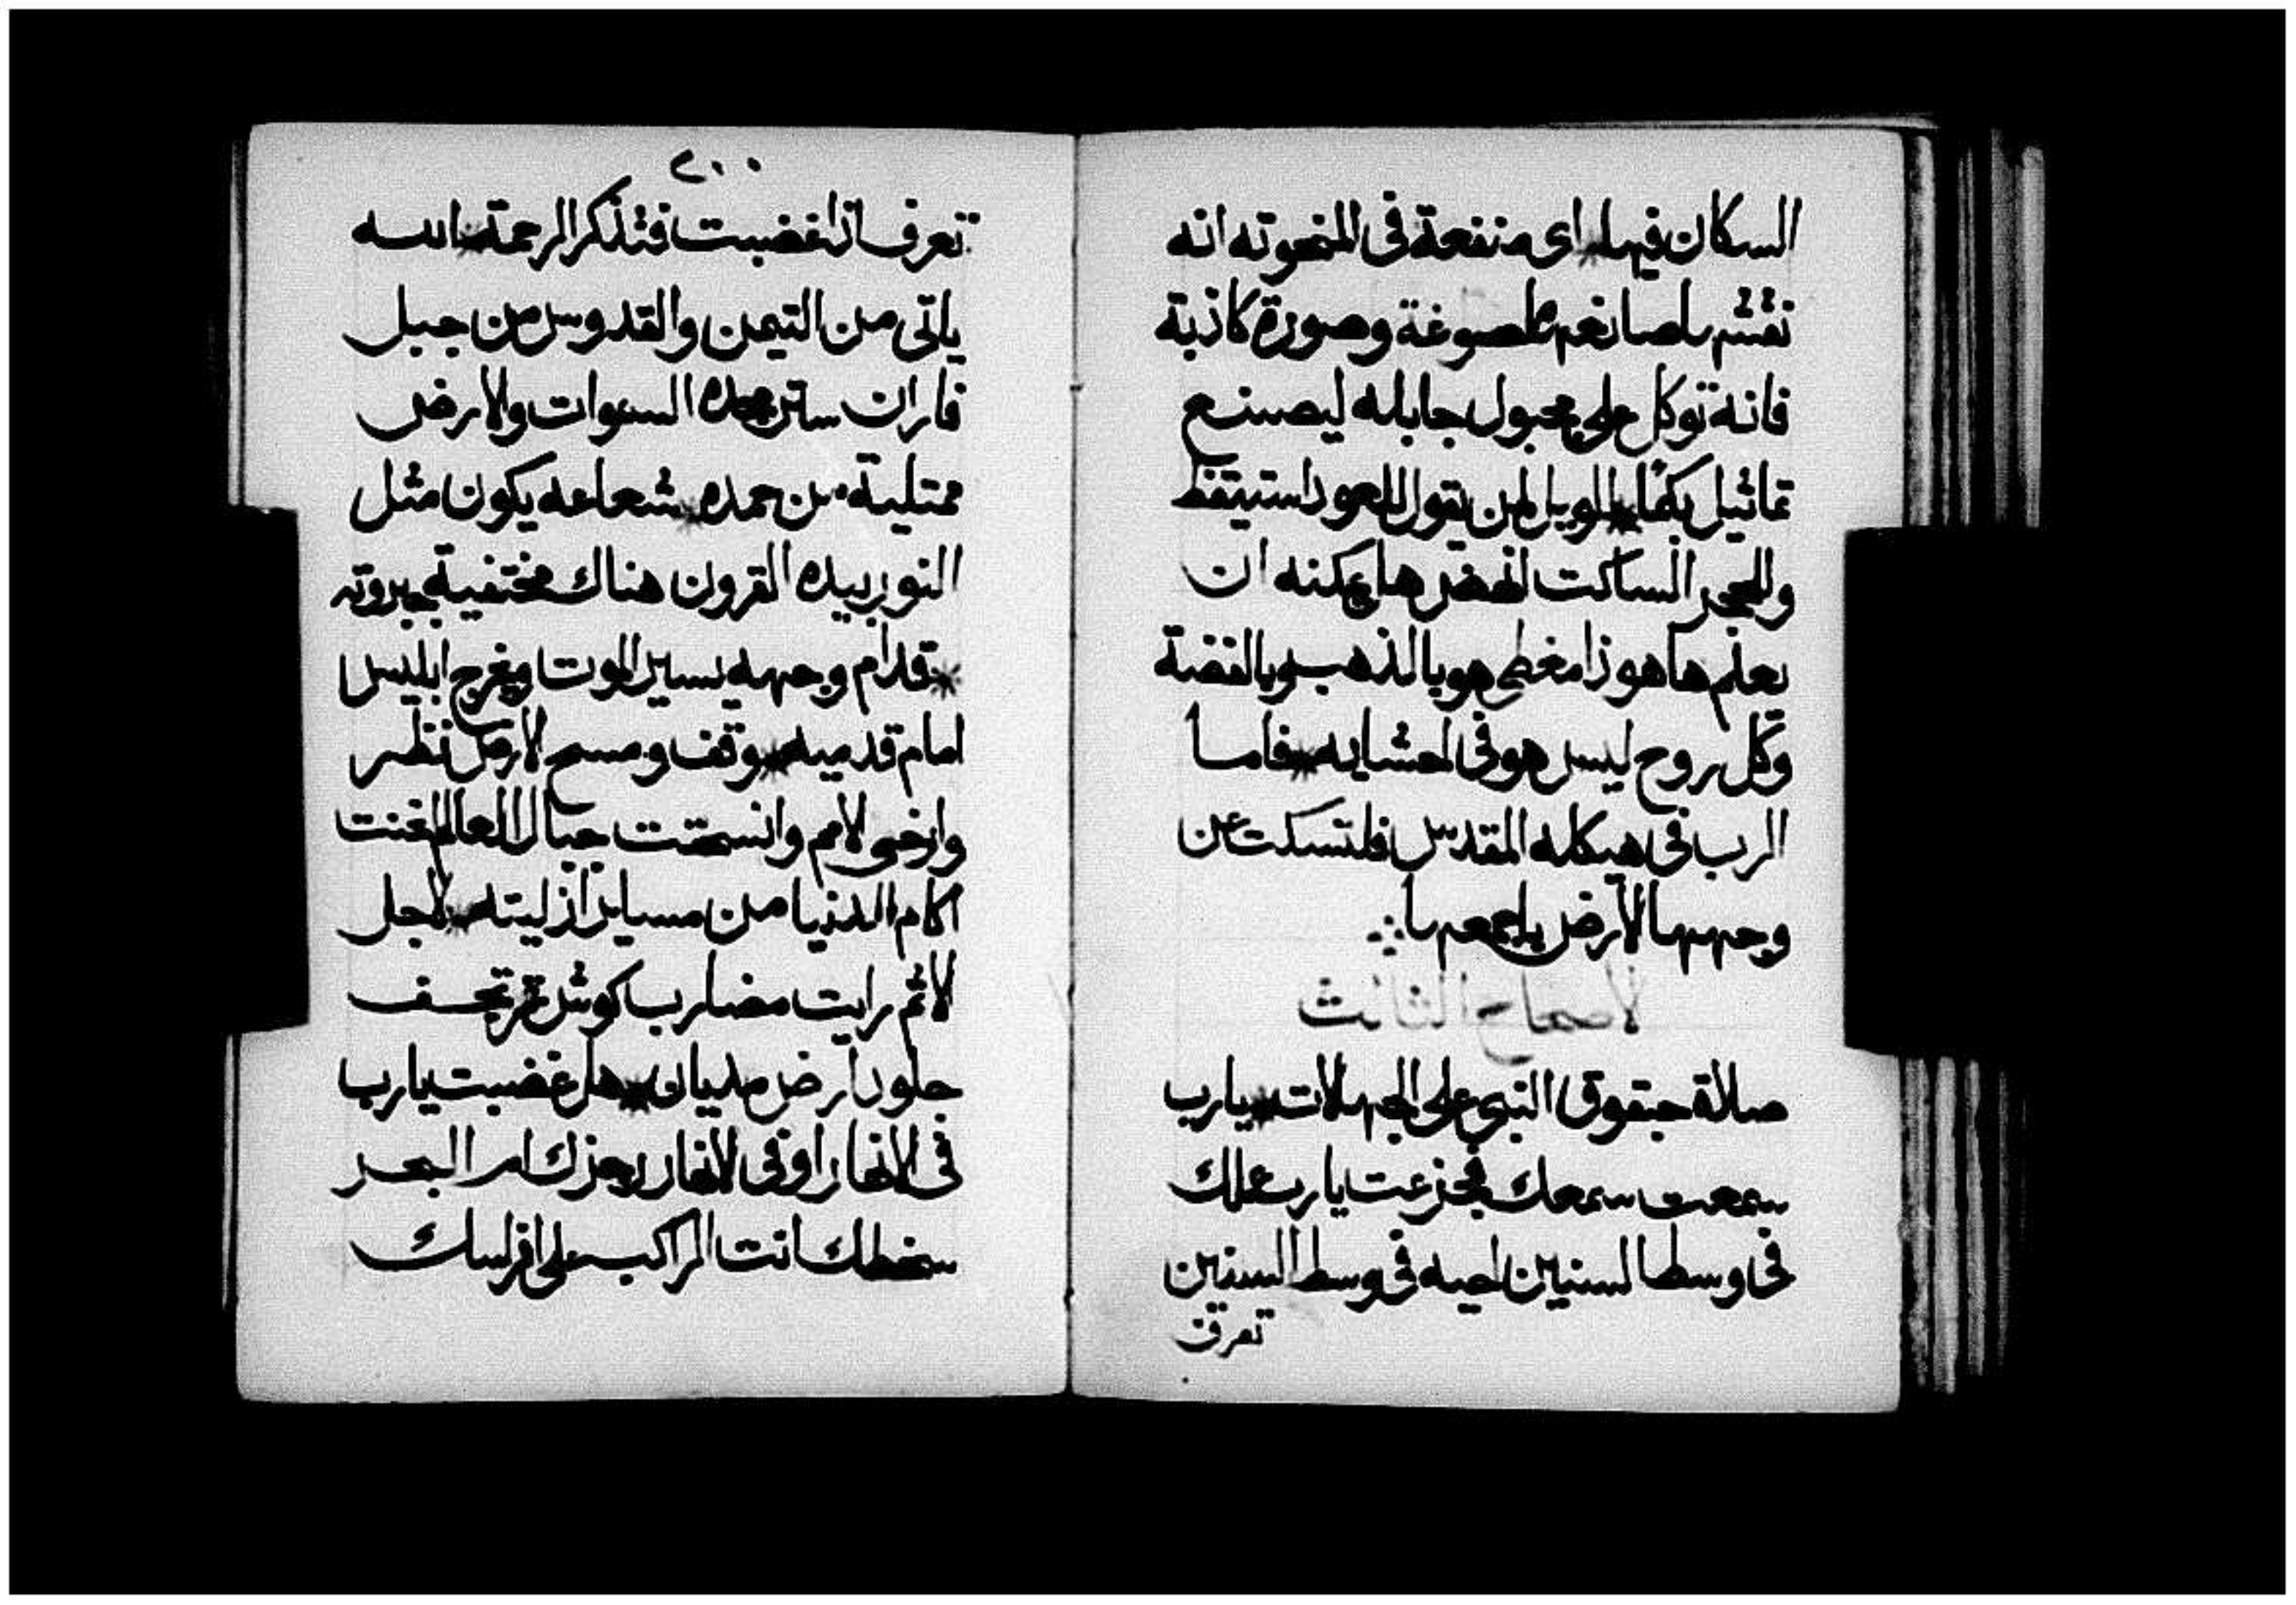 السكان فيها * اى منفعة فى المنحوته انه
نقشها صانعها مصوغة وصورة كاذبة
فانه توكل على مجبول جابله ليصنع
تماثيل بكمًا * الويل لمن يقول للعود استيقظ
وللحجر الساكت انهض ها يمكنه ان
يعلم ها هوذا مغطى هو بالذهب وبالفضة
وكل روح ليس هو فى احشايه * فاما
الرب فى هيكله المقدس فلتسكت عن
وجهها الارض باجمعها
الاصحاح الثالث
صلاة حبقوق النبى على الجهالات * يارب
سمعت سمعك فجزعت يارب عملك
فى وسط السنين احيه فى وسط السنين
تعرف
٢٠٠
تعرف اذا غضبت فتذكر الرحمة * الله
ياتى من التيمن والقدوس من جبل
فاران ستر مجده السموات والارض
ممتلية من حمده * شعاعه يكون مثل
النور بيده القرون هناك مختفية جبروته
* قدام وجهه يسير الموت ويخرج ابليس
امام قدميه * وقف ومسح الارض نظر
وارخى الامم وانسحقت جبال العالم انحنت
اكام الدنيا من مساير ازليته * لاجل
لاثم رايت مضارب كوش ترتجف
جلود ارض مديان * هل غضبت يارب
فى الانهار او فى الانهار رجزك ام البحر
سخطك انت الراكب على افراسك